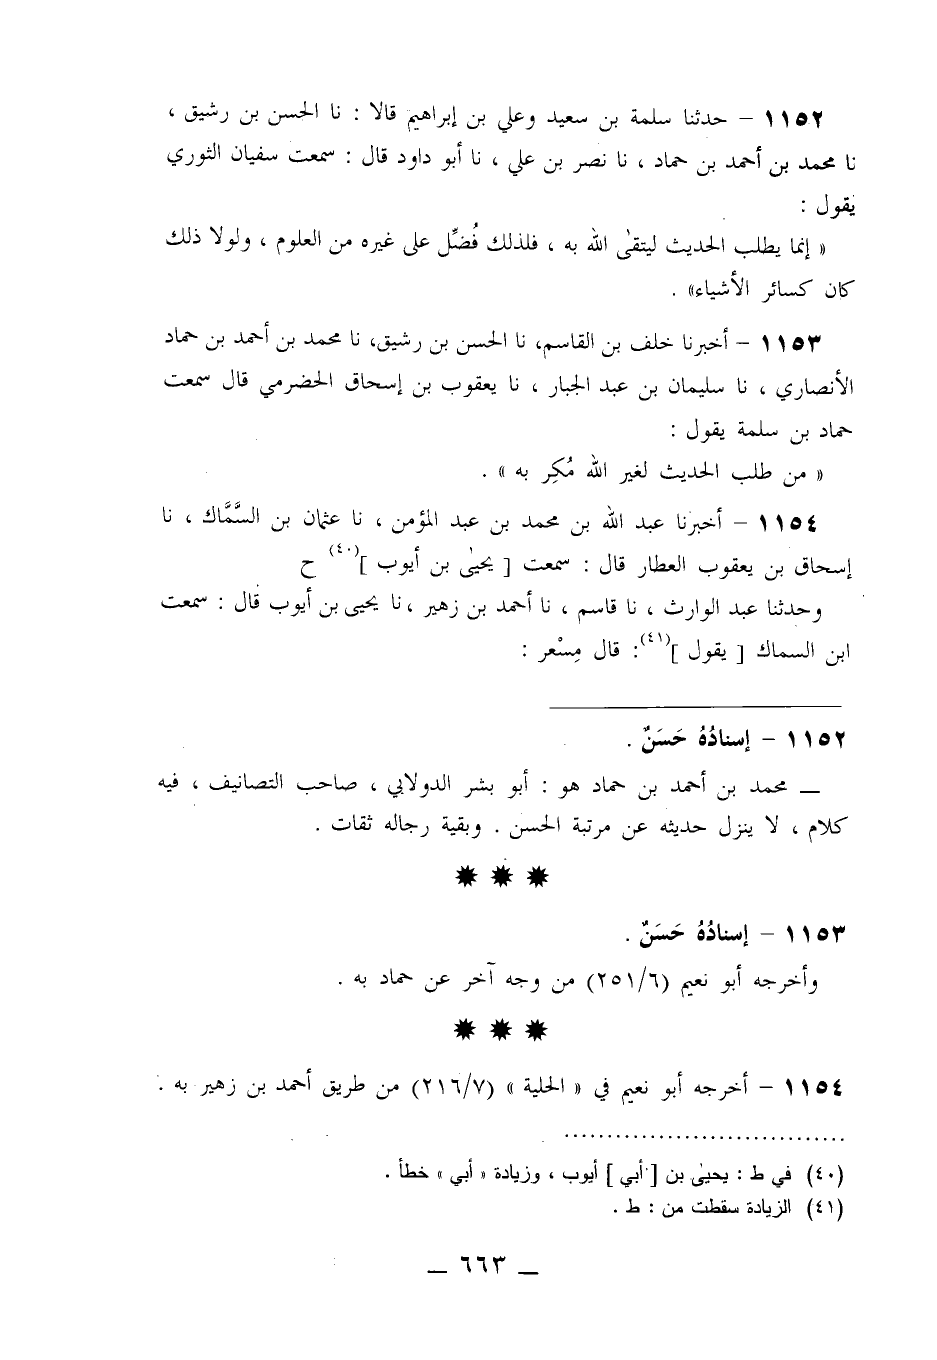 ١١٥٢ – حدثنا سلمة بن سعيد وعلي بن إبراهيم قالا : نا الحسن بن رشيق ،
نا محمد بن أحمد بن حماد ، نا نصر بن علي ، نا أبو داود قال : سمعت سفيان الثوري
يقول :
« إنما يطلب الحديث ليتقىٰ الله به ، فلذلك فُضِّل على غيره من العلوم ، ولولا ذلك
كان كسائر الأشياء» .
١١٥٣ – أخبرنا خلف بن القاسم، نا الحسن بن رشيق، نا محمد بن أحمد بن حماد
الأنصاري ، نا سليمان بن عبد الجبار ، نا يعقوب بن إسحاق الحضرمي قال سمعت
حماد بن سلمة يقول :
« من طلب الحديث لغير الله مُكِر به » .
١١٥٤ – أخبرنا عبد الله بن محمد بن عبد المؤمن ، نا عثمان بن السَّمَّاك ، نا
إسحاق بن يعقوب العطار قال : سمعت [ يحيىٰ بن أيوب ](٤٠) ح
وحدثنا عبد الوارث ، نا قاسم ، نا أحمد بن زهير ،نا يحيى بن أيوب قال : سمعت
ابن السماك [ يقول ](٤١): قال مِسْعر :
١١٥٢ – إسنادُهُ حَسَنٌ .
— محمد بن أحمد بن حماد هو : أبو بشر الدولابي ، صاحب التصانيف ، فيه
كلام ، لا ينزل حديثه عن مرتبة الحسن . وبقية رجاله ثقات .
١١٥٣ – إسنادُهُ حَسَنٌ .
وأخرجه أبو نعيم (٢٥١/٦) من وجه آخر عن حماد به .
١١٥٤ – أخرجه أبو نعيم في « الحلية » (٢١٦/٧) من طريق أحمد بن زهير به .
(٤٠) في ط : يحيىٰ بن [ أبي ] أيوب ، وزيادة « أبي » خطأ .
(٤١) الزيادة سقطت من : ط .
— ٦٦٣ —